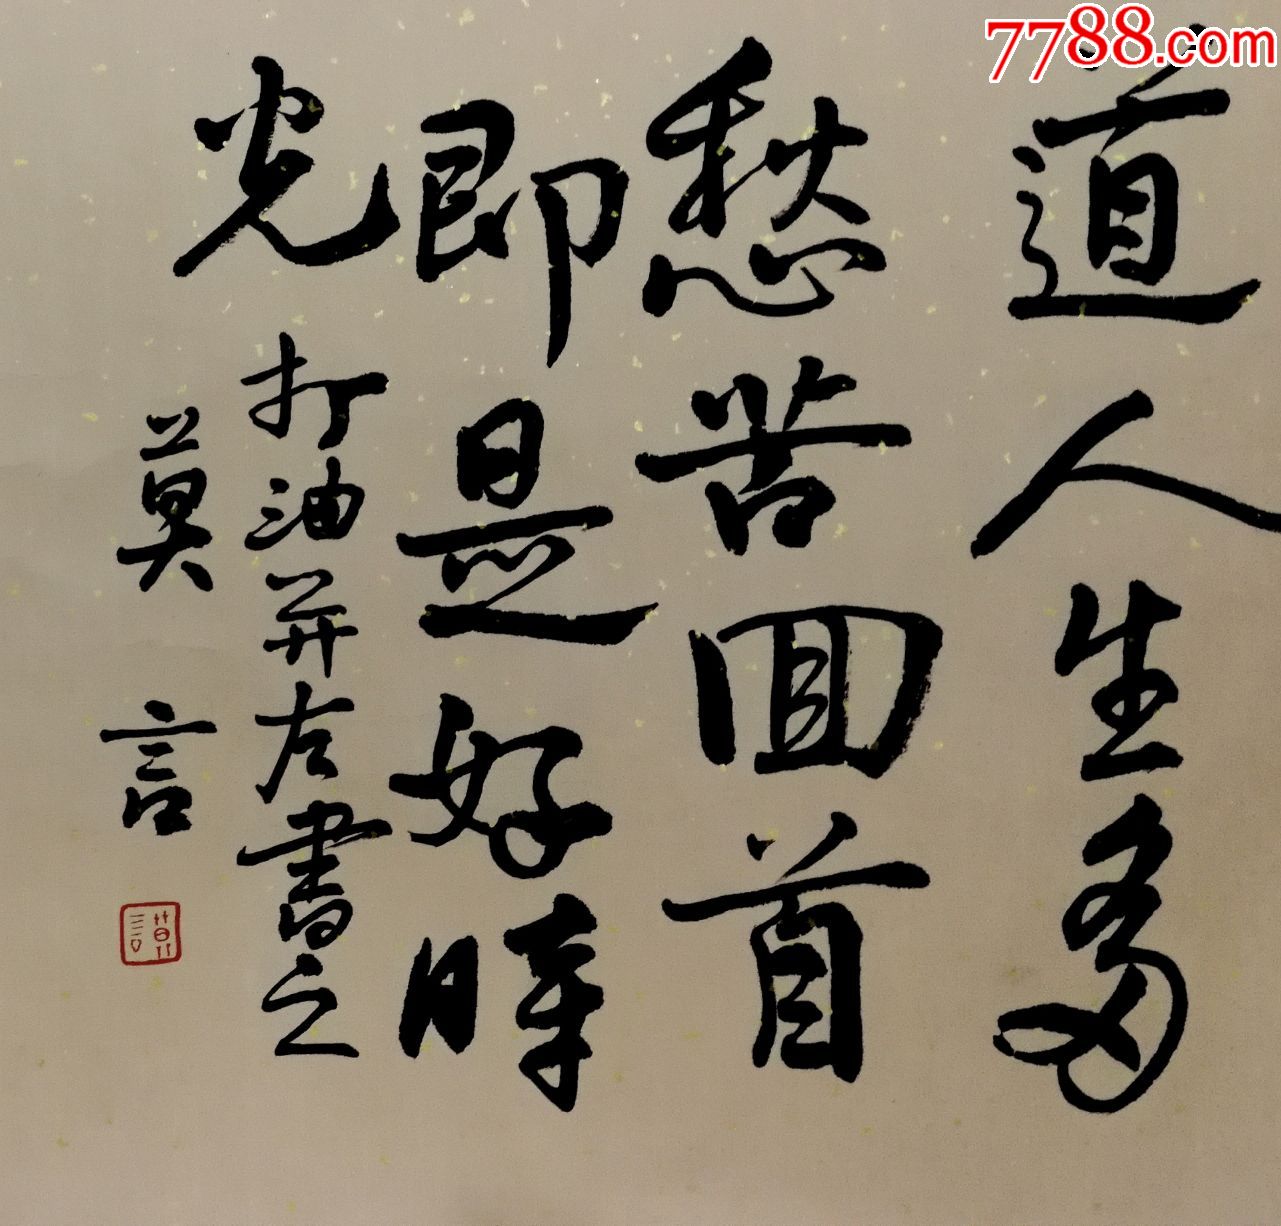 道人生多
愁苦回首
即是好時
光
打油并左書之
莫言
7788.com